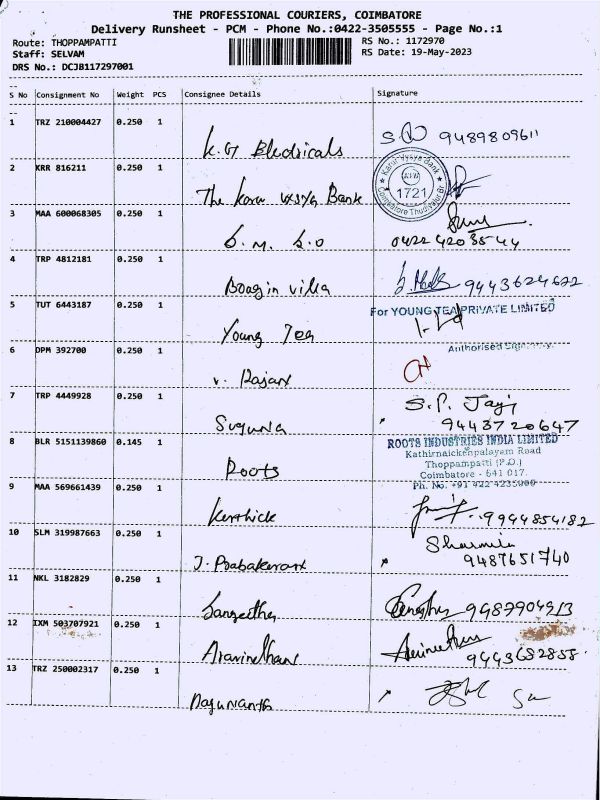 THE PROFESSIONAL COURIERS, COIMBATORE
Delivery Runsheet - PCM - Phone No.:0422-3505555 - Page No.:1
Route: THOPPAMPATTI RS No.: 1172970
Staff: SELVAM RS Date: 19-May-2023
DRS No.: DCJB117297001
S No Consignment No Weight PCS Consignee Details Signature
1 TRZ 210004427 0.250 1 K.G Electricals 9489809611
2 KRR 816211 0.250 1 The Karur Vysya Bank Karur Vysya Bank 1721 Coimbatore Thudiyalur Br
3 MAA 600068305 0.250 1 0422 4203544
4 TRP 4812181 0.250 1 villa 9443624622
5 TUT 6443187 0.250 1 Young Tea For YOUNG TEA PRIVATE LIMITED
Authorised Signatory.
6 DPM 392700 0.250 1 V. Rajan
7 TRP 4449928 0.250 1 Suguna S.P. 9443720647
8 BLR 5151139860 0.145 1 Roots ROOTS INDUSTRIES INDIA LIMITED
Kathirnaickenpalayam Road
Thoppampatti (P.O.)
Coimbatore - 641 017.
Ph. No. +91 422 4235000
9 MAA 569661439 0.250 1 Karthick 9944854182
10 SLM 319987663 0.250 1 J. Prabakaran Sharmila 9487651740
11 NKL 3182829 0.250 1 Sangeetha 9487904913
12 IXM 503707921 0.250 1 Aravindhan 9443692858
13 TRZ 250002317 0.250 1